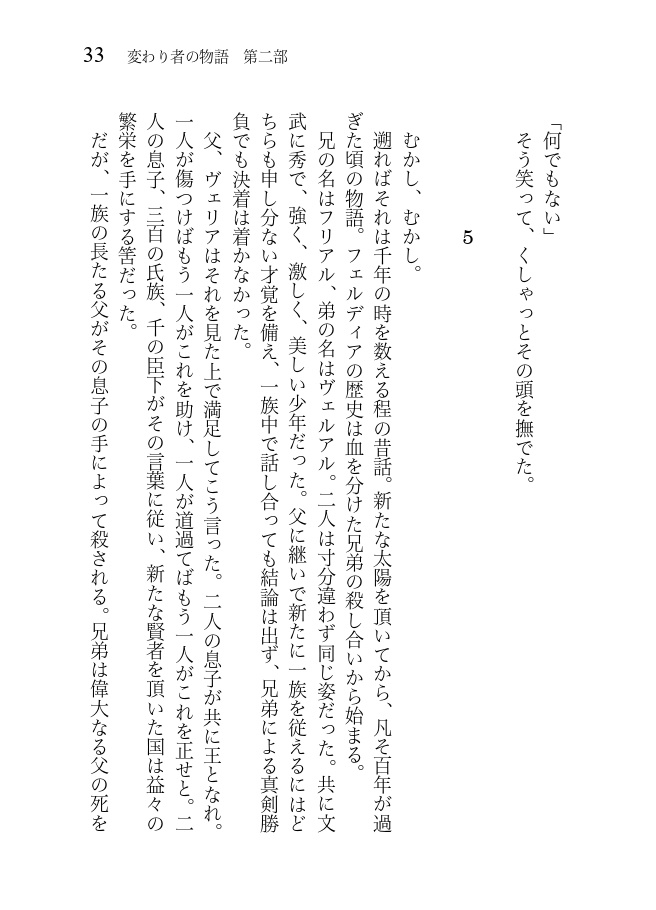 33　変わり者の物語　第二部
「何でもない」
　そう笑って、くしゃっとその頭を撫でた。
5
　むかし、むかし。
　遡ればそれは千年の時を数える程の昔話。新たな太陽を頂いてから、凡そ百年が過
ぎた頃の物語。フェルディアの歴史は血を分けた兄弟の殺し合いから始まる。
　兄の名はフリアル、弟の名はヴェルアル。二人は寸分違わず同じ姿だった。共に文
武に秀で、強く、激しく、美しい少年だった。父に継いで新たに一族を従えるにはど
ちらも申し分ない才覚を備え、一族中で話し合っても結論は出ず、兄弟による真剣勝
負でも決着は着かなかった。
　父、ヴェリアはそれを見た上で満足してこう言った。二人の息子が共に王となれ。
一人が傷つけばもう一人がこれを助け、一人が道過てばもう一人がこれを正せと。二
人の息子、三百の氏族、千の臣下がその言葉に従い、新たな賢者を頂いた国は益々の
繁栄を手にする筈だった。
　だが、一族の長たる父がその息子の手によって殺される。兄弟は偉大なる父の死を